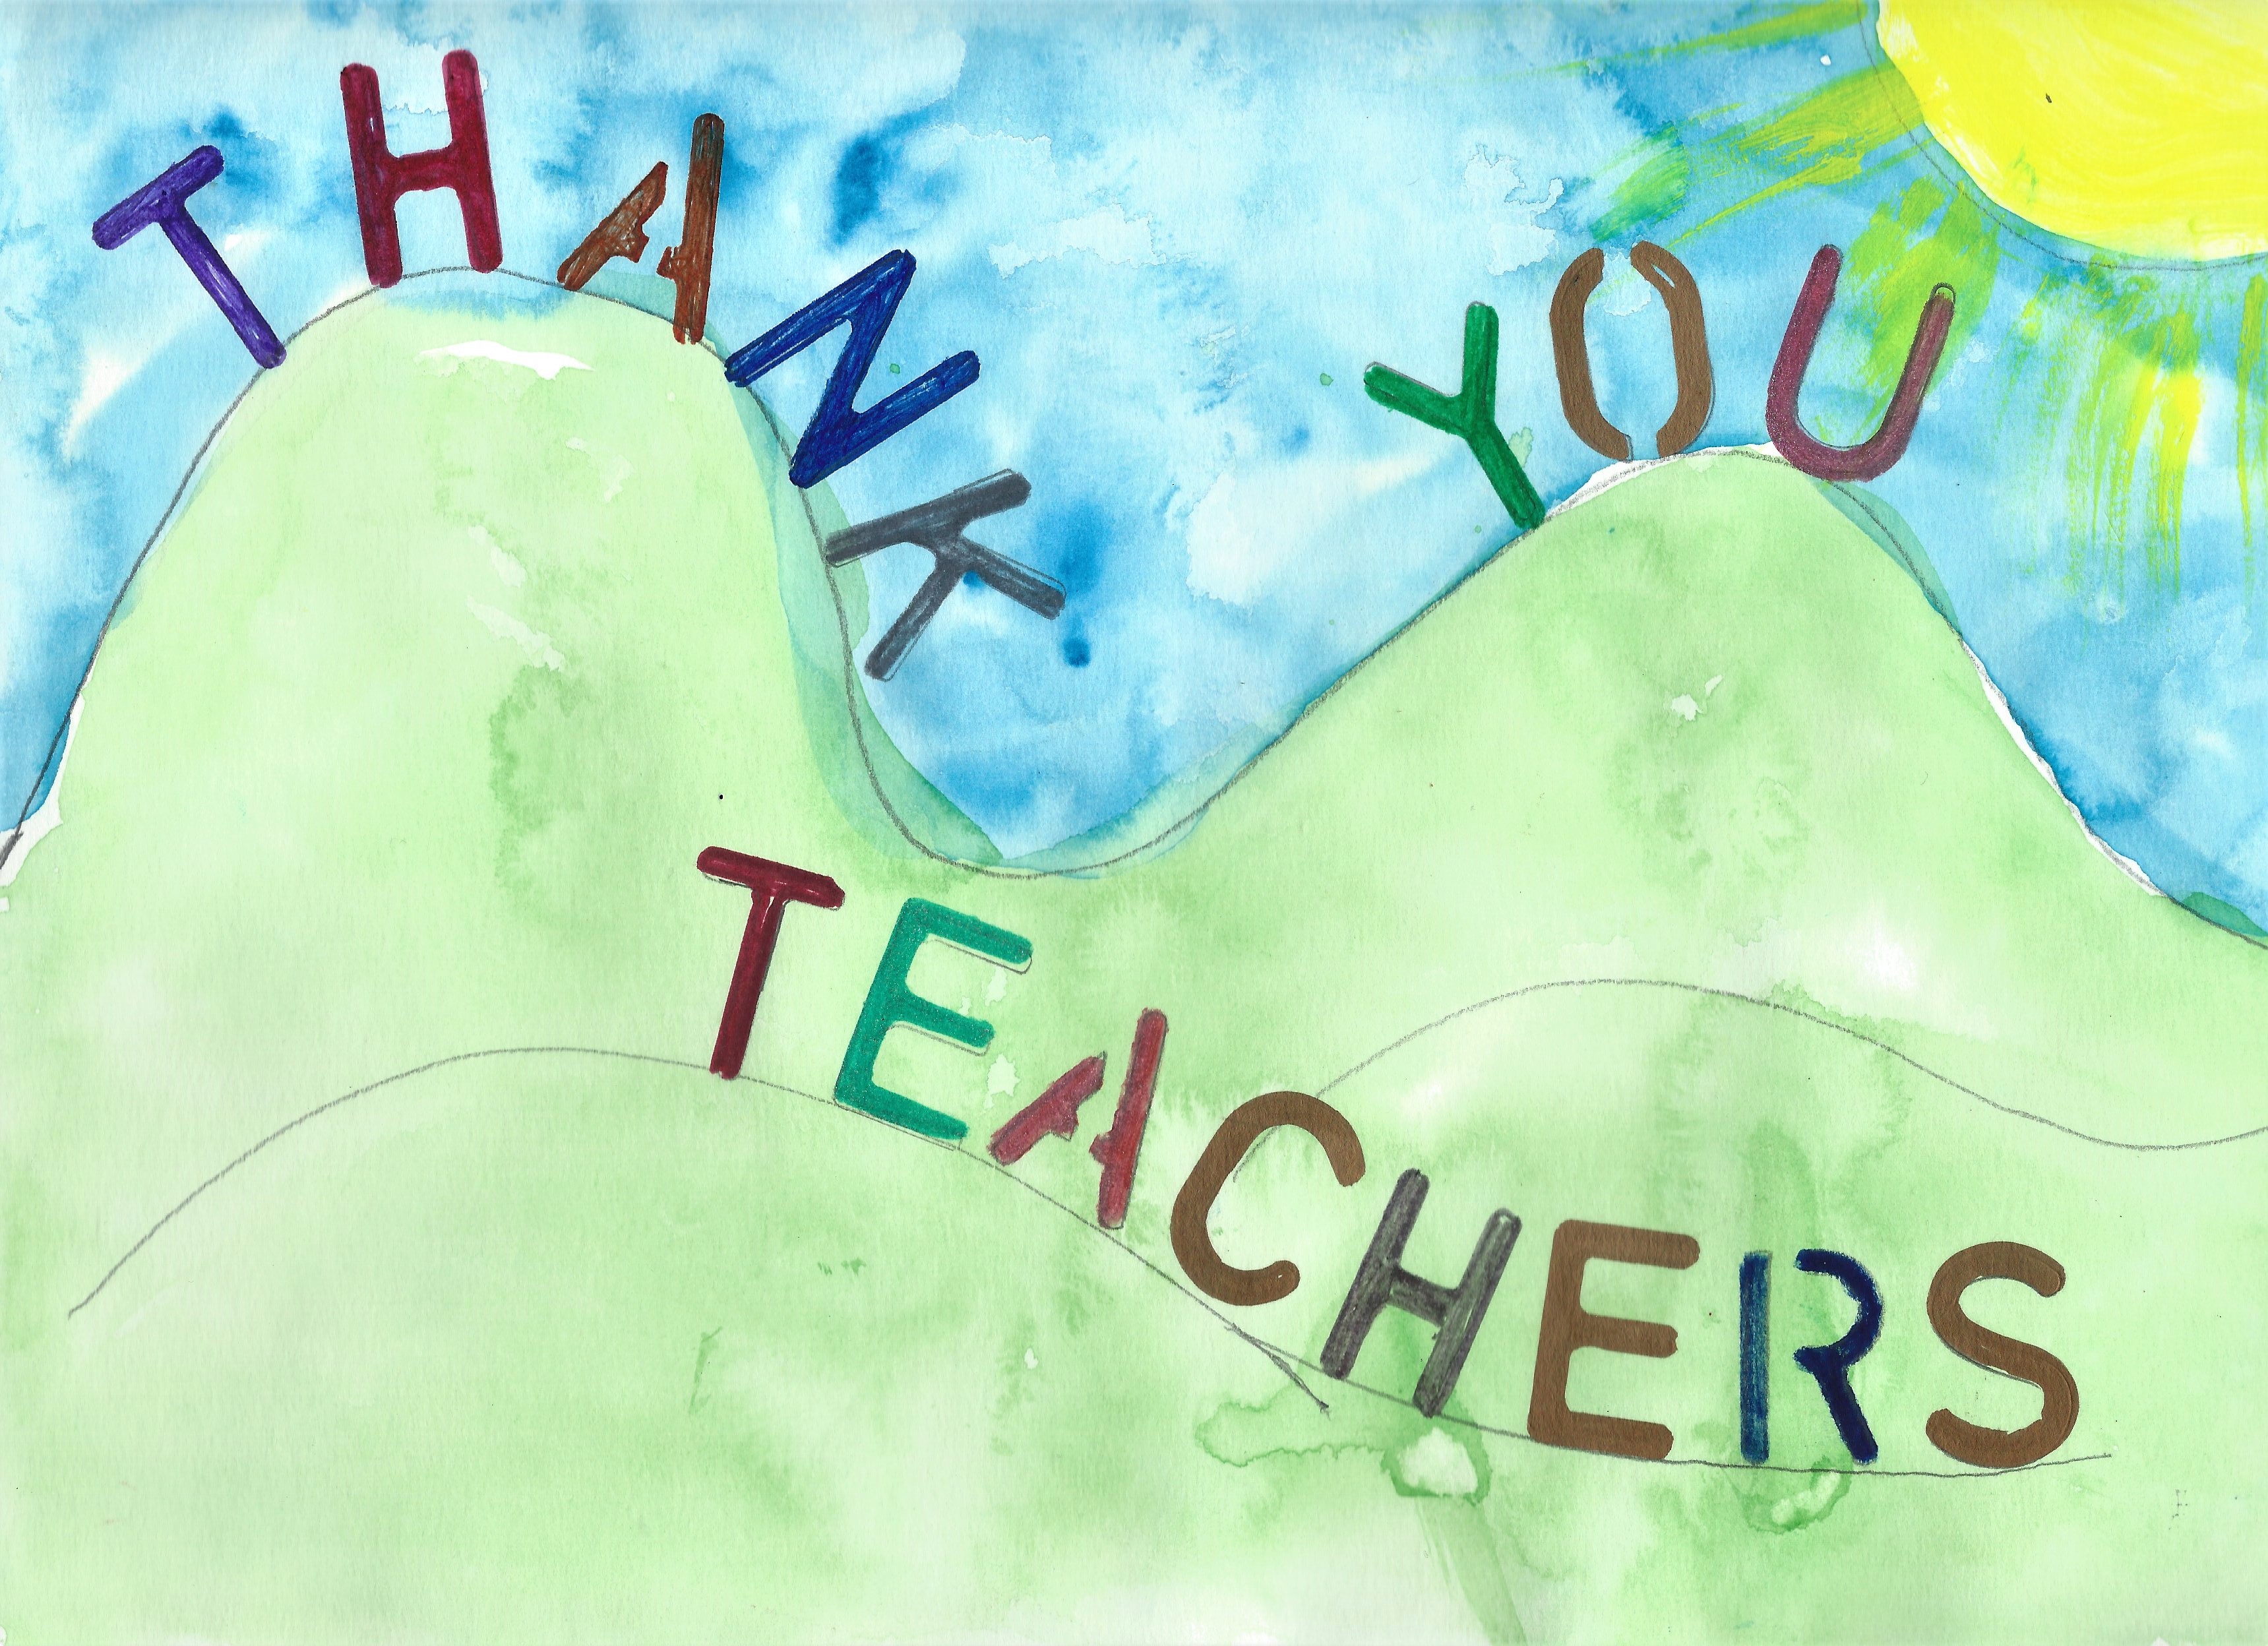 THANK YOU
TEACHERS